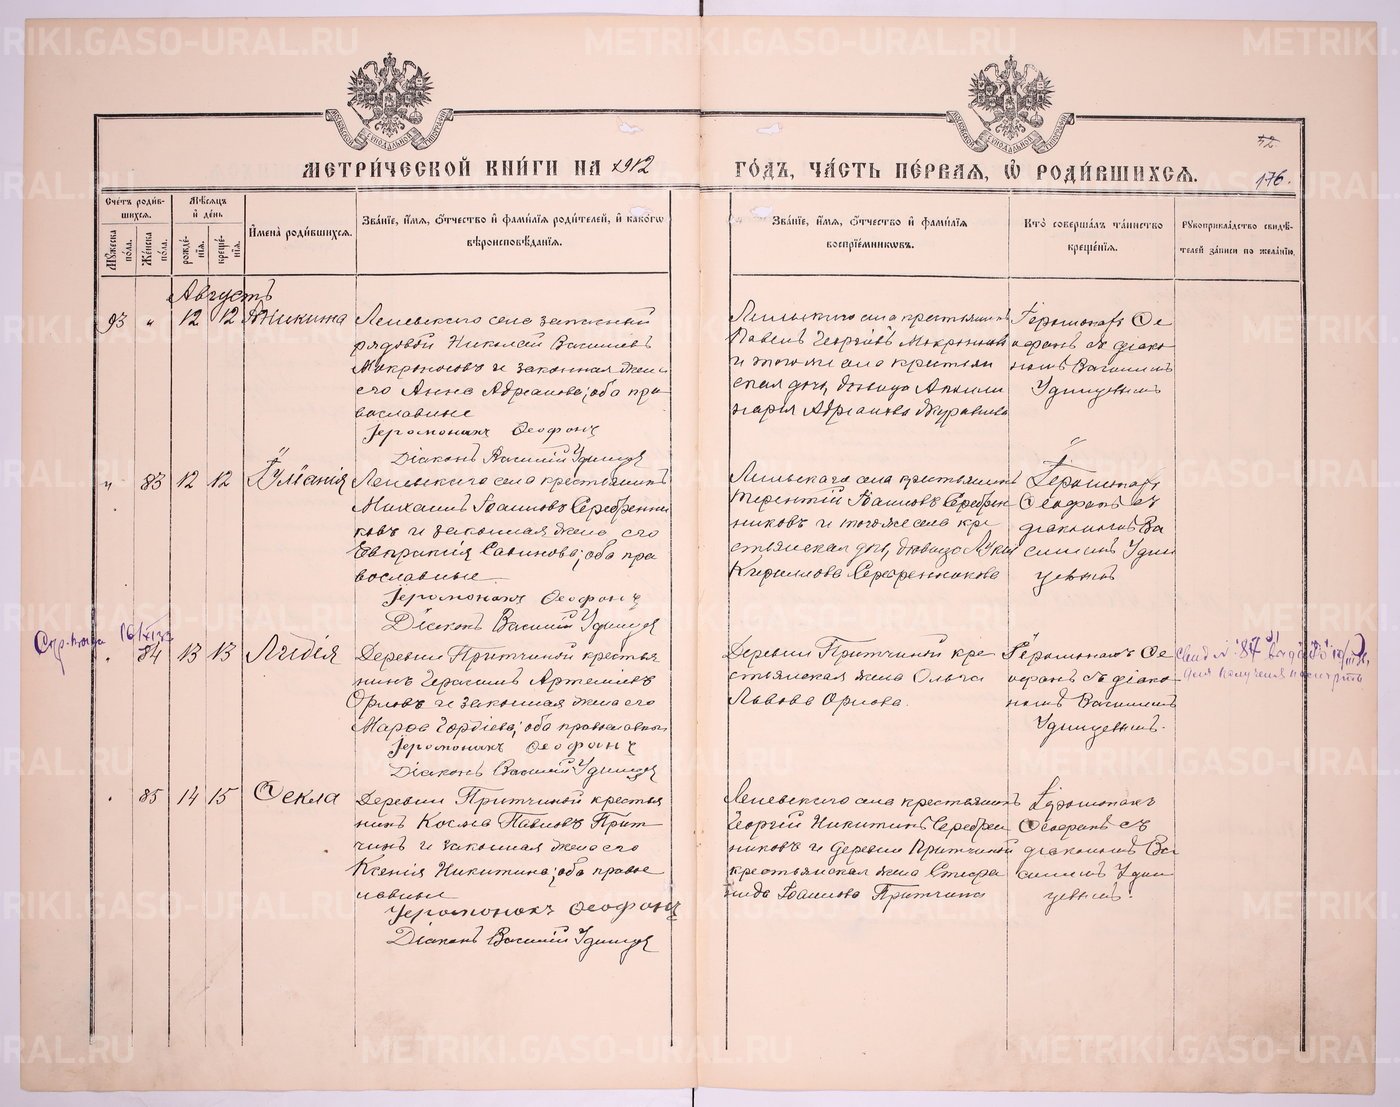 МЕТРИЧЕСКОЙ КНИГИ НА 1912
ГОДЪ, ЧАСТЬ ПЕРВАЯ, Ѿ РОДИВШИХСЯ.
42
176.
Счетъ родив-
шихся.
Мужеска
пола.
Женска
пола.
Мѣсяцъ
и день
рожде-
нія.
креще-
нія.
Имена родившихся.
Званіе, имя, отчество и фамилія родителей, и какого
вѣроисповѣданія.
Званіе, имя, отчество и фамилія
воспріемниковъ.
Кто совершалъ таинство
крещенія.
Рукоприкладство свидѣ-
телей записи по желанію.
Августъ
93 " 12 12 Аникита
запасный
рядовой Николай Василіевъ
Мокроносовъ и законная жена
его Анна Адріанова; оба пра-
вославные
Іеромонахъ Ѳеофанъ
Діаконъ Василій Удинцев
села крестьянинъ
Павелъ Георгіевъ Мокроносовъ
и того же села крестьян
ская дочь, девица Аполли
нарія Адріанова Журавлева
Іеромонахъ Ѳе
офанъ съ діако
номъ Василіемъ
Удинцевымъ
" 83 12 12 Іуліанія
села крестьянинъ
Михаилъ Іоанновъ Серебренни
ковъ и законная жена его
Евпраксія Савинова; оба пра
вославные
Іеромонахъ Ѳеофанъ
Діаконъ Василій Удинцев
села крестьянинъ
Терентій Іоанновъ Серебрен
никовъ и того же села кре
стьянская дочь, девица Лукия
Кириллова Серебренникова
Іеромонахъ
Ѳеофанъ съ
діакономъ Ва
силіемъ Удин
цевымъ
" 84 13 13 Лидія
Деревни Притчиной крестья
нинъ Герасимъ Артемиевъ
Орловъ и законная жена его
Марѳа Гордіева; оба православные
Іеромонахъ Ѳеофанъ
Діаконъ Василій Удинцев
Деревни Притчиной кре
стьянская жена Ольга
Львова Орлова.
Іеромонахъ Ѳе
офанъ съ діако
номъ Василіемъ
Удинцевымъ.
" 85 14 15 Ѳекла
Деревни Притчиной крестья
нинъ Косма Павловъ Прит-
чинъ и законная жена его
Ксенія Никитина; оба право
славные
Іеромонахъ Ѳеофанъ
Діаконъ Василій Удинцев
села крестьянинъ
Георгій Никитинъ Серебрен
никовъ и деревни Притчиной
крестьянская жена Стефа
нида Іоаннова Притчина
Іеромонахъ
Ѳеофанъ съ
діакономъ Ва
силіемъ Удин
цевымъ.
METRIKI.GASO-URAL.RU